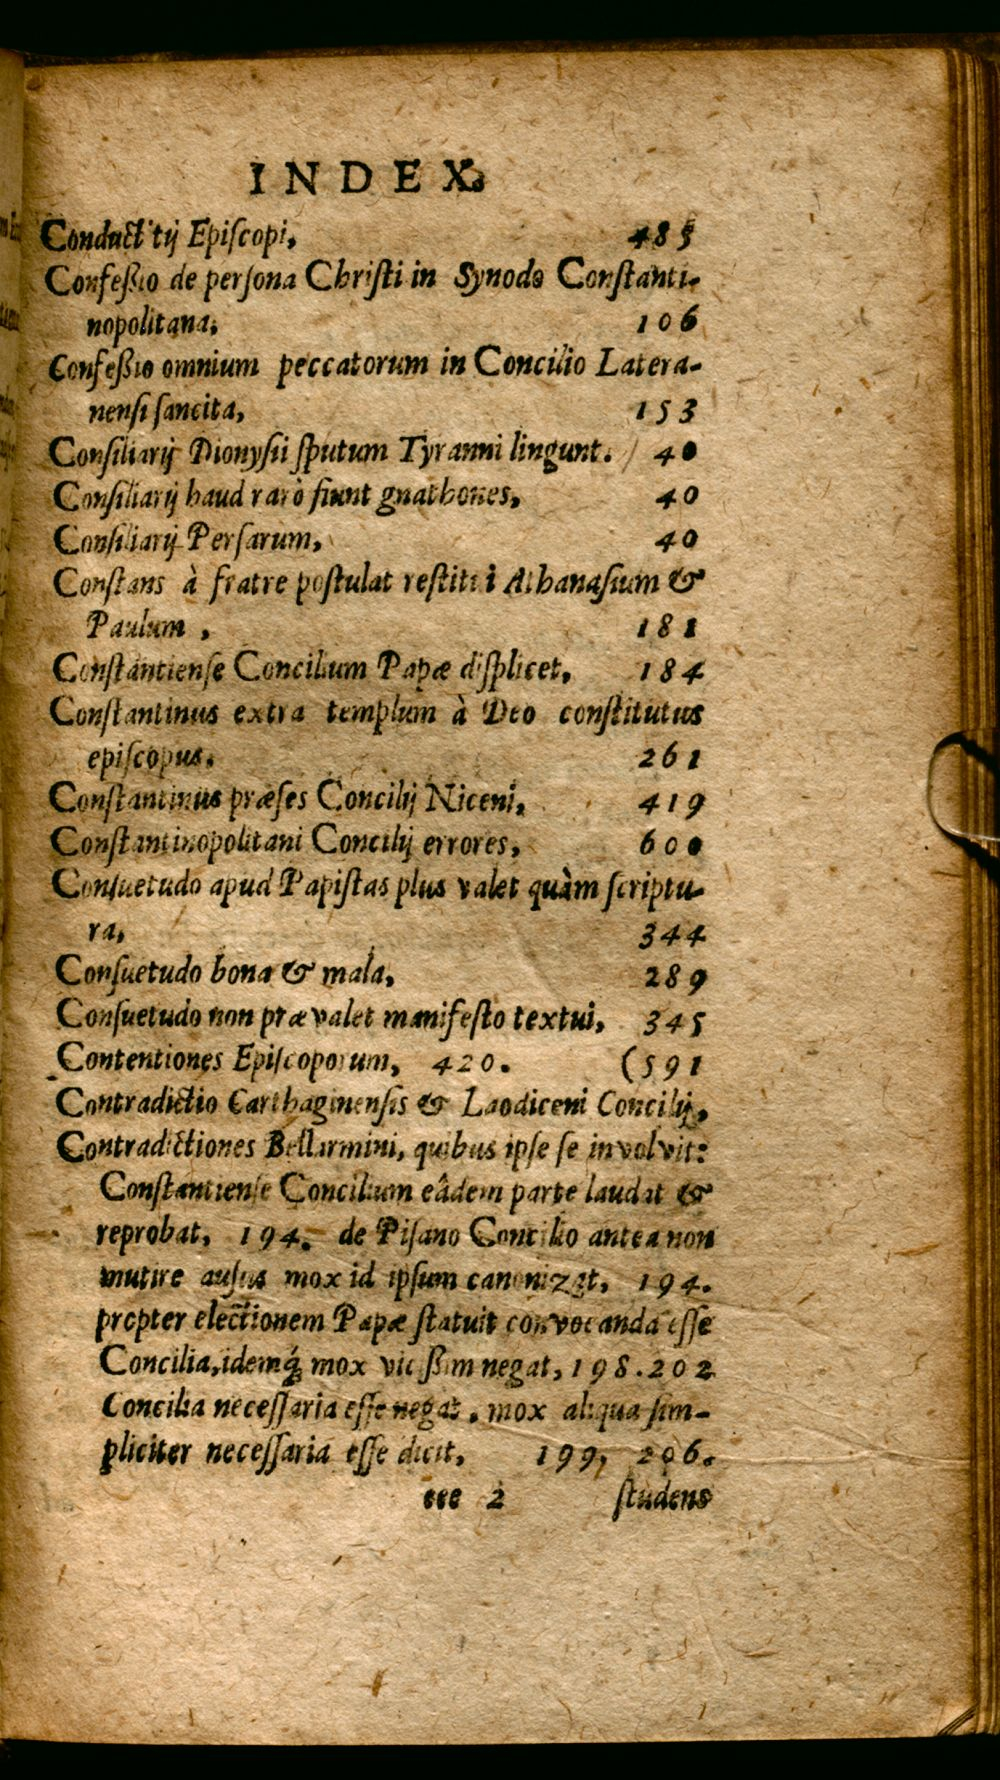 INDEX.
Conductitij Episcopi, 485
Confeßio de persona Christi in Synodo Constanti-
nopolitana, 106
Confeßio omnium peccatorum in Concilio Latera-
nensi sancita, 153
Consiliarij Dionysii sputum Tyranni lingunt. 40
Consiliarij haud rarò fiunt gnathones, 40
Consiliarij Persarum, 40
Constans à fratre postulat restitui Athanasium &
Paulum, 181
Constantiense Concilium Papæ displicet, 184
Constantinus extra templum à Deo constitutus
episcopus. 261
Constantinus præses Concilij Niceni, 419
Constantinopolitani Concilij errores, 600
Consuetudo apud Papistas plus valet quàm scriptu-
ra, 344
Consuetudo bona & mala, 289
Consuetudo non prævalet manifesto textui, 345
Contentiones Episcoporum, 420. (591
Contradictio Carthaginensis & Laodiceni Concilij,
Contradictiones Bellarmini, quibus ipse se involvit:
Constantiense Concilium eâdem parte laudat &
reprobat, 194. de Pisano Concilio antea non
mutire ausus mox id ipsum canonizat, 194.
propter electionem Papæ statuit convocanda esse
Concilia, idemq́; mox vicißim negat, 198. 202
Concilia necessaria esse negat, mox aliqua sim-
pliciter necessaria esse dicit, 199, 206.
eee 2 studens